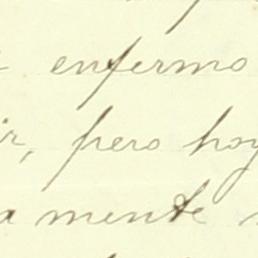 enfermo
ir, pero hoy
amente